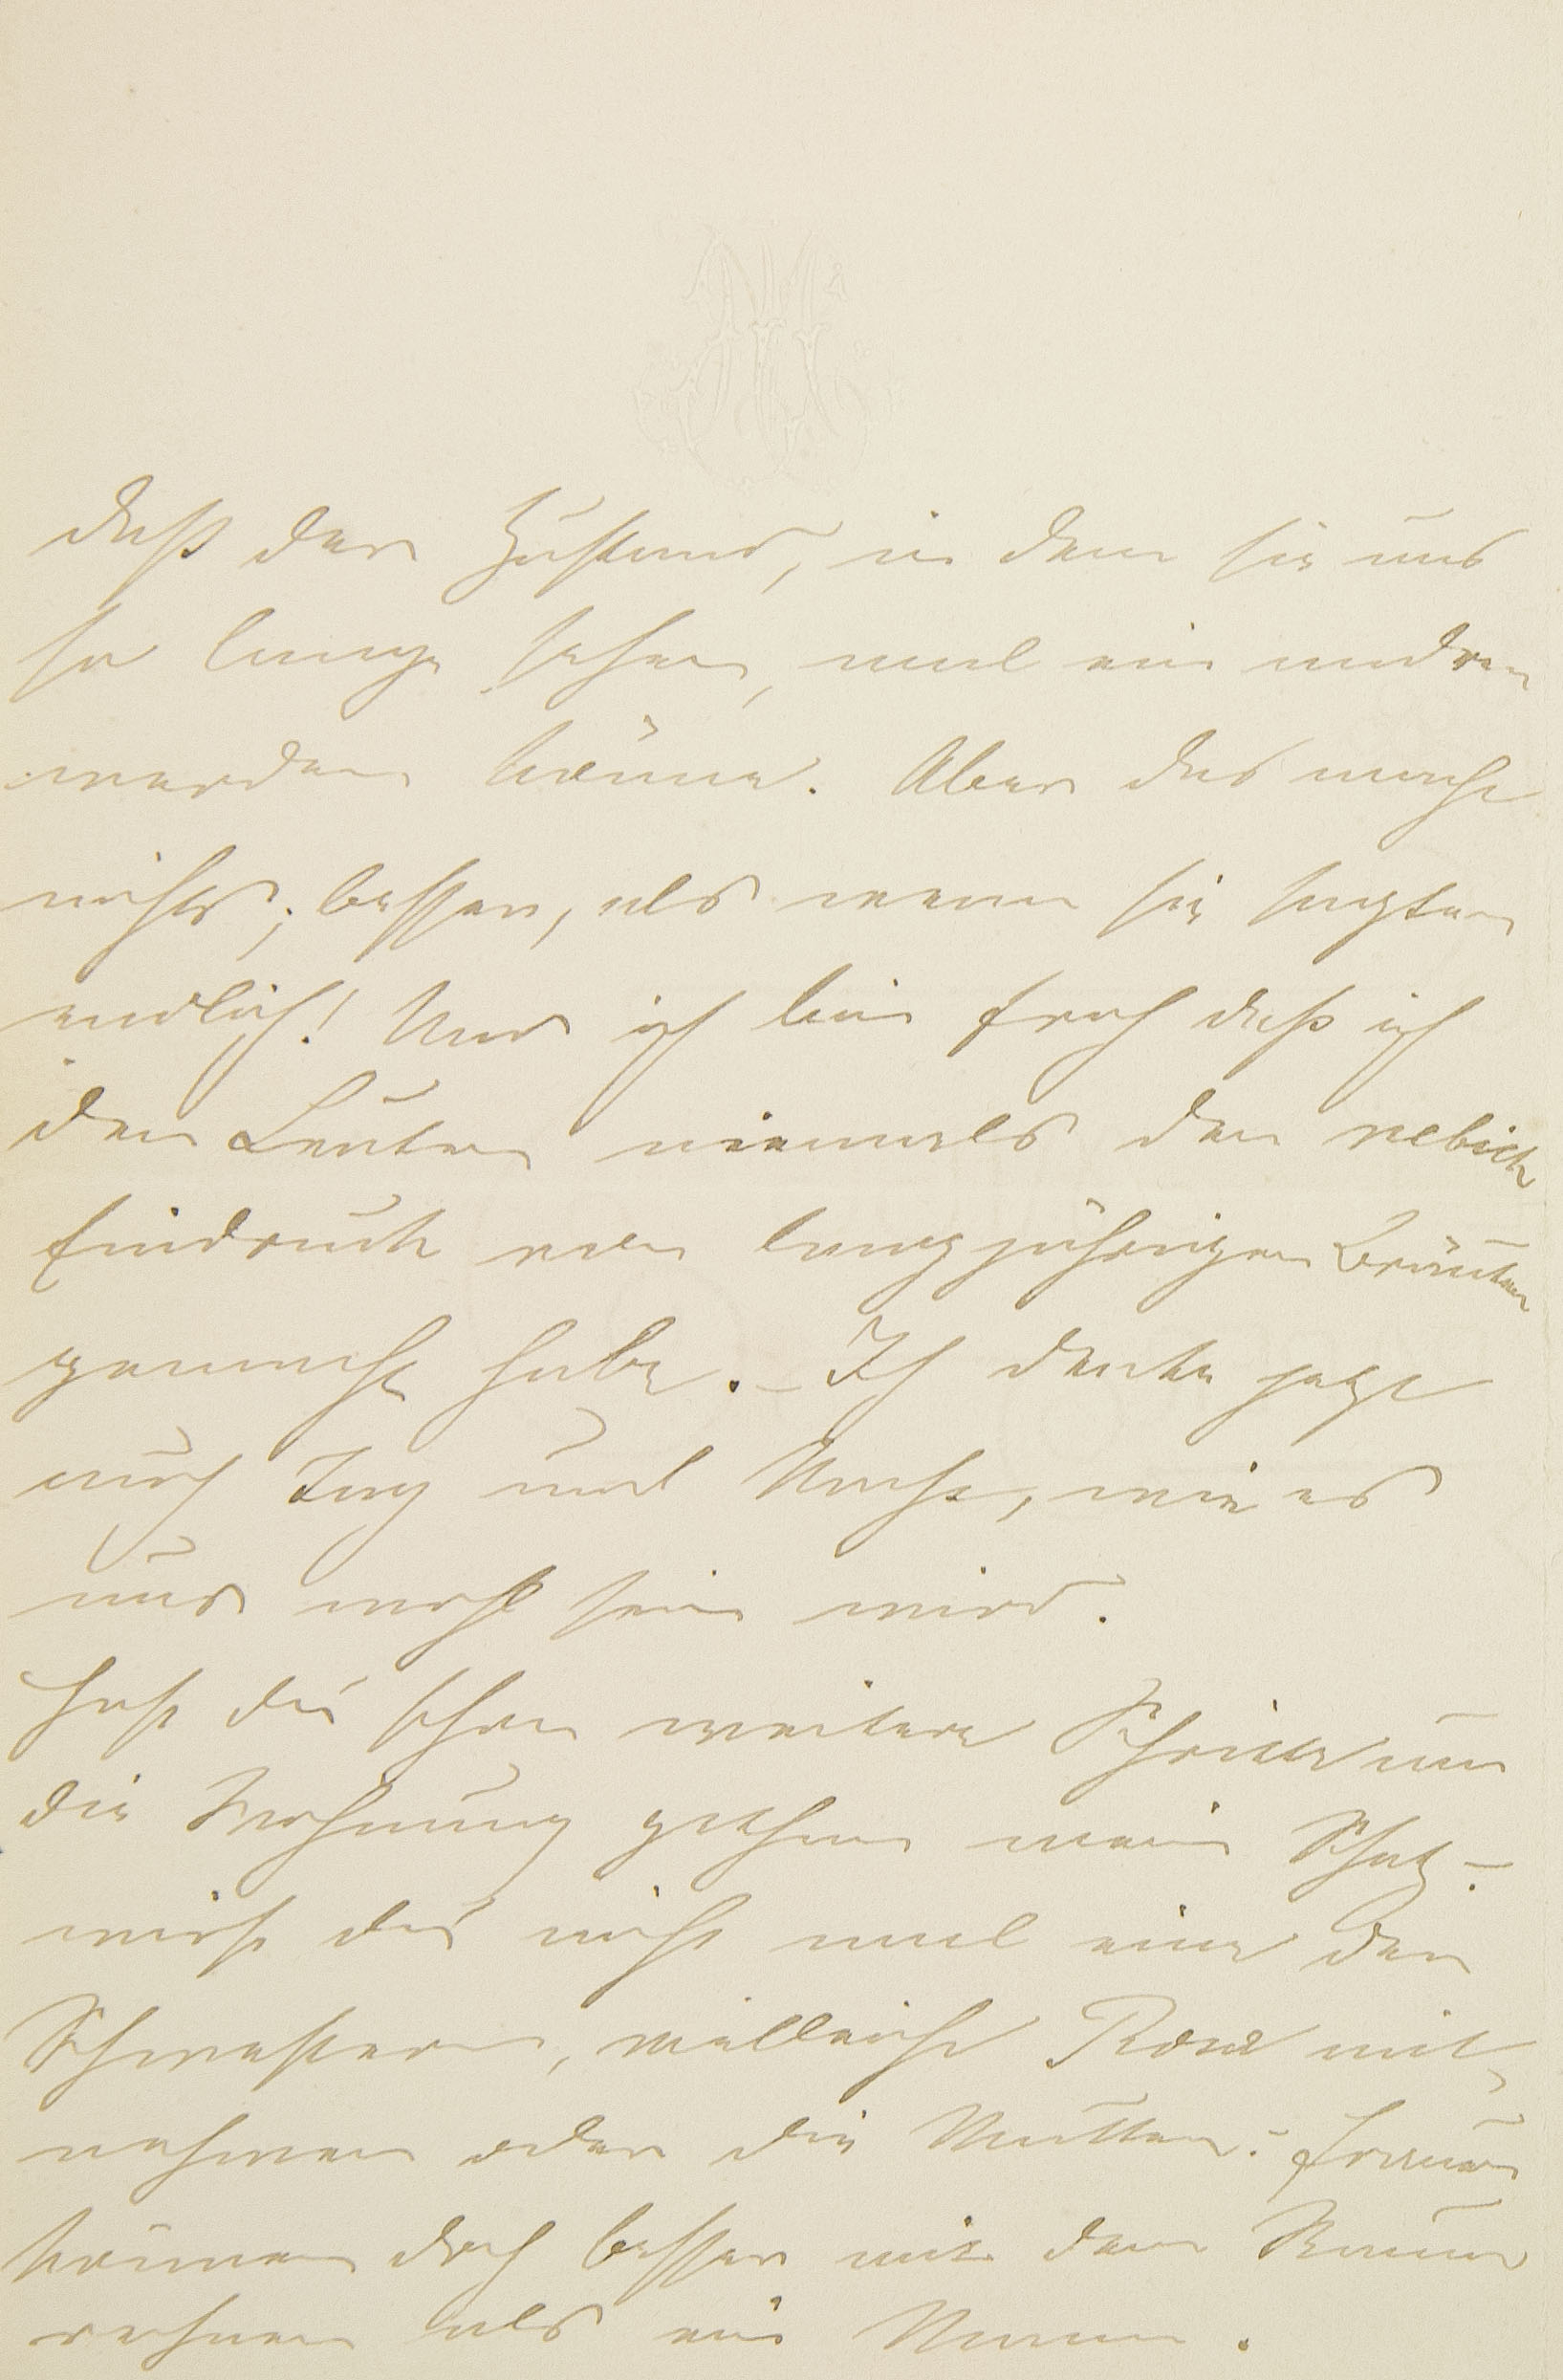 daß der Zustand, in dem sie uns
so lange sehen, mal ein andrer
werden könne. Aber das macht
nichts; besser, als wenn sie sagten
endlich! Und ich bin froh daß ich
den Leuten niemals den nebich
Eindruck von langjährigen Bräuten
gemacht habe. – Ich denke jetzt
auch Tag und Nacht, wie es
uns wohl sein wird.
Hast du schon weitere Schritte um
die Wohnung gethan mein Schatz –
wirst du nicht mal eine der
Schwestern, vielleicht Rosa mit
nehmen oder die Mutter: Frauen
können doch besser mit dem Raum
rechnen als ein Mann.